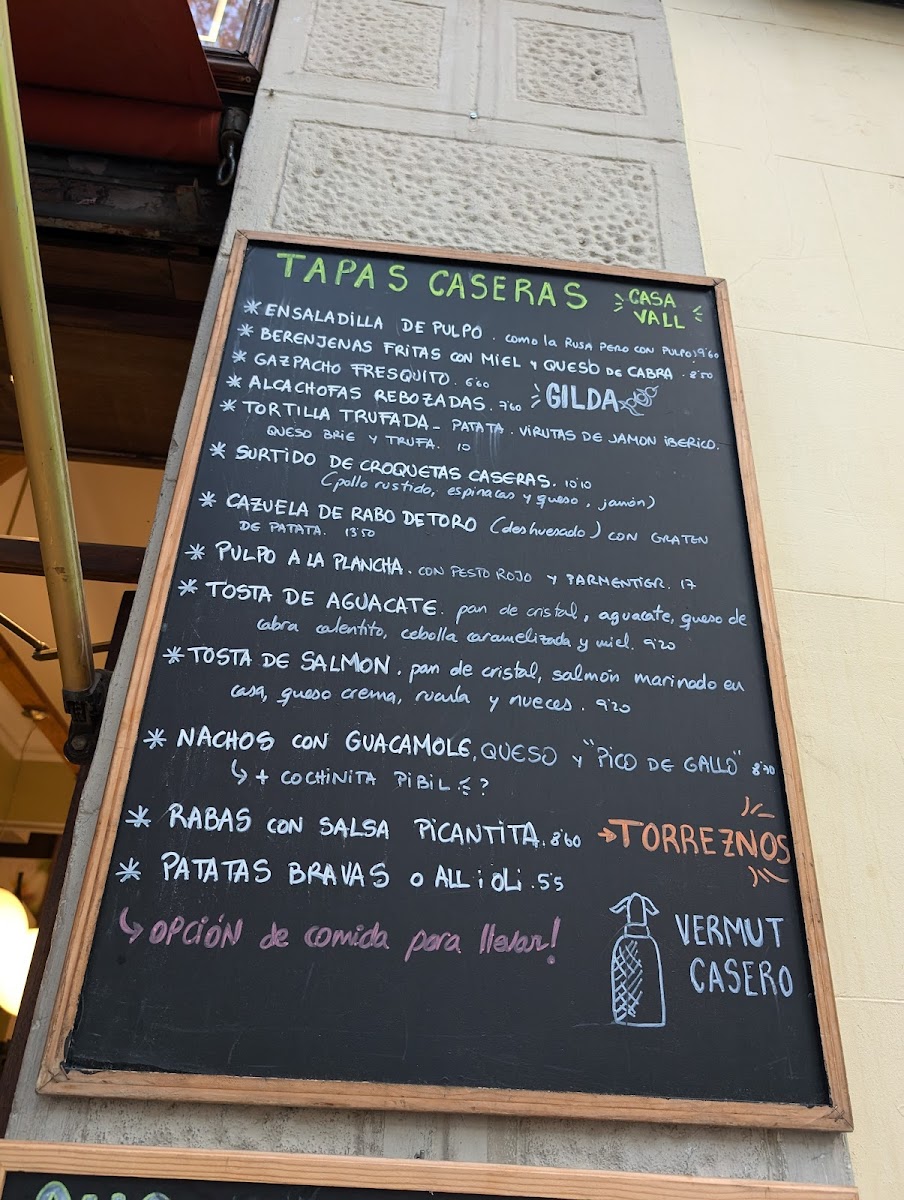 TAPAS CASERAS
CASA
VALL
* ENSALADILLA DE PULPO. como la RUSA PERO CON PULPO! 9'60
* BERENJENAS FRITAS CON MIEL y QUESO DE CABRA. 8'50
* GAZPACHO FRESQUITO. 6'60
GILDA
* ALCACHOFAS REBOZADAS. 7'60
* TORTILLA TRUFADA - PATATA. VIRUTAS DE JAMON IBERICO.
QUESO BRIE Y TRUFA. 10
* SURTIDO DE CROQUETAS CASERAS. 10'10
(pollo rustido, espinacas y queso, jamón)
* CAZUELA DE RABO DE TORO (deshuesado) CON GRATEN
DE PATATA. 13'50
* PULPO A LA PLANCHA. CON PESTO ROJO Y PARMENTIER. 17
* TOSTA DE AGUACATE. pan de cristal, aguacate, queso de
cabra calentito, cebolla caramelizada y miel. 9'20
* TOSTA DE SALMON. pan de cristal, salmón marinado en
casa, queso crema, rucula y nueces. 9'20
* NACHOS CON GUACAMOLE, QUESO Y "PICO DE GALLO" 8'70
↳ + COCHINITA PIBIL ?
* RABAS CON SALSA PICANTITA. 8'60
→ TORREZNOS
* PATATAS BRAVAS O ALL i OLI. 5'5
↳ OPCIÓN de comida para llevar!
VERMUT
CASERO